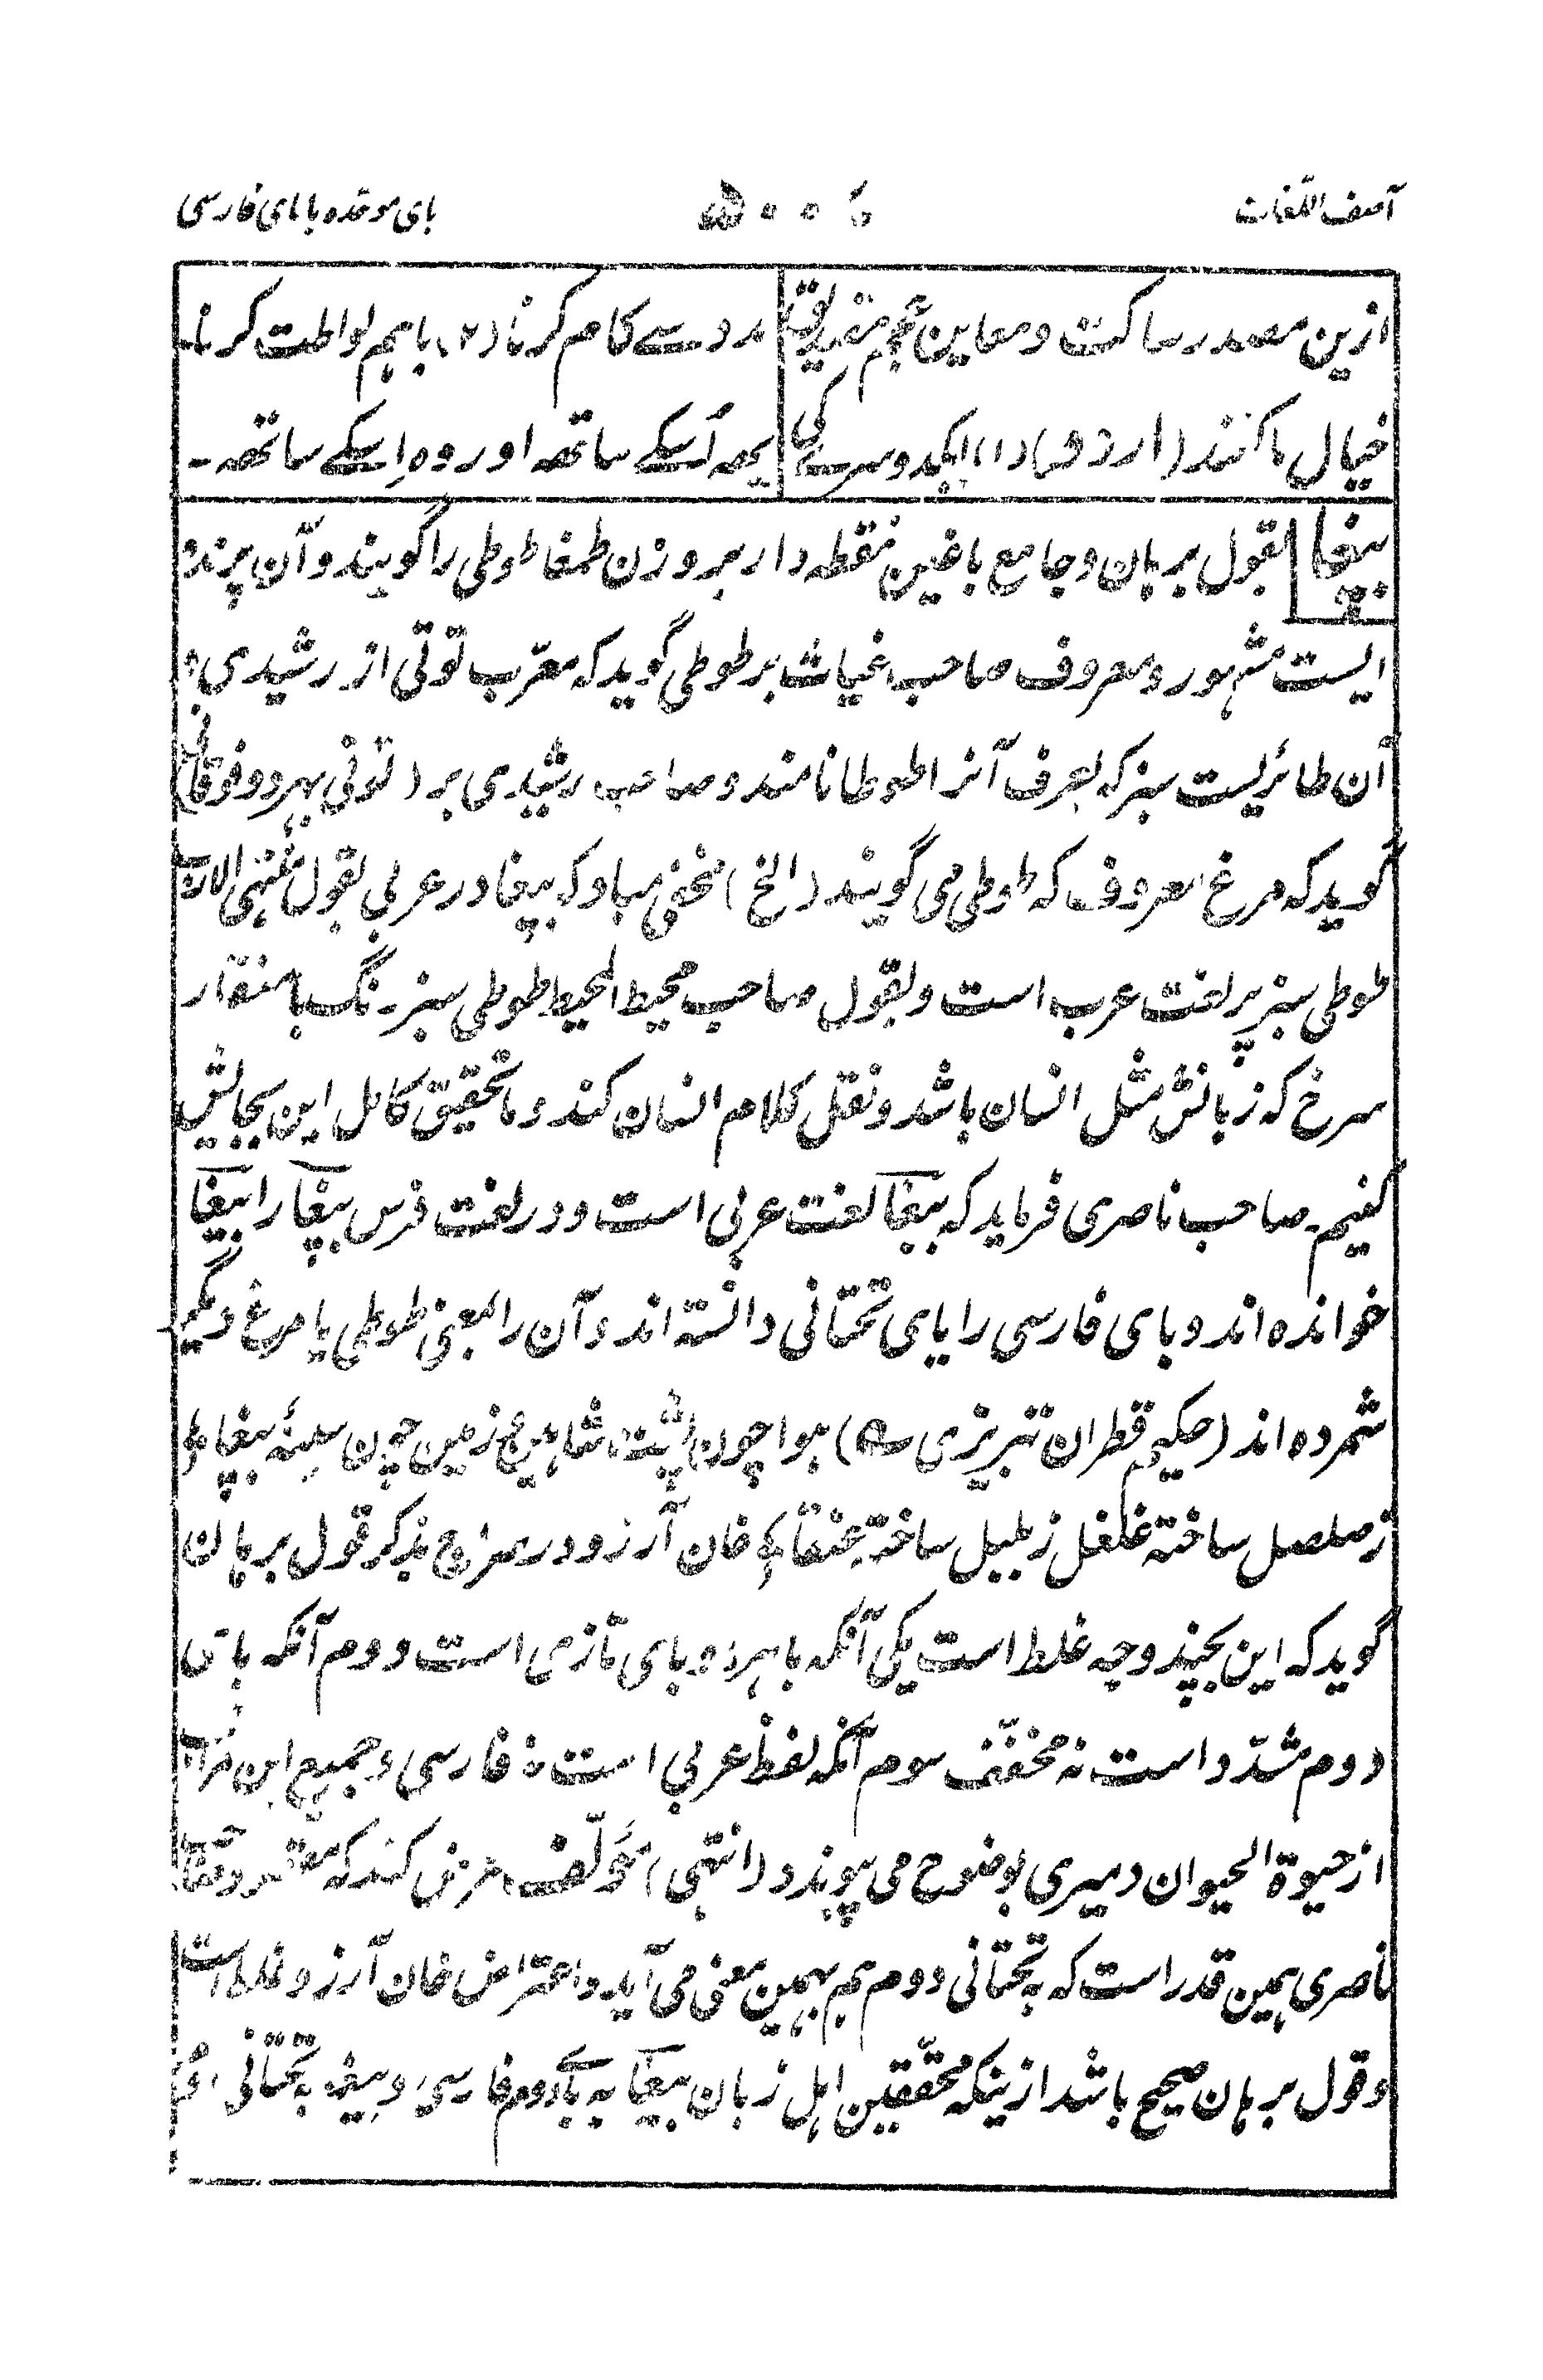 آصف اللّغات
بای موحّده با بای فارسی
ازین مصدر ساکت و معاصرین عجم تصدیق
خیال ما کنند (اردو) (۱) ایکدوسرے کی
مدد سے کام کرنا (۲) باہم لواطت کرنا۔
یعہ اُسکے ساتھہ اور وہ اِسکے ساتھہ۔
بپغا بقول برہان و جامع باغین نقطہ دار بر وزن طمغا طوطی را گویند و آن پرندہ
ایست مشہور و معروف صاحب غیاث بر طوطی گوید کہ معرّب توتی از رشیدی و
آن طائریست سبز کہ بعرف آنرا طوطا نامند و صاحب رشیدی بر (توتی بہر دو فوقانی)
گوید کہ مرغ معروف کہ طوطی می گویند (الخ) مخفی مباد کہ ببغا در عربی بقول منتہی الارب
طوطی سبز پر لغت عرب است و بقول صاحب محیط المحیط طوطی سبز رنگ با منقار
سرخ کہ زبانش مثل انسان باشد و نقل کلام انسان کند و ما تحقیق کامل این بجایش
کنیم۔ صاحب ناصری فرماید کہ ببغا لغت عربی است و در لغت فرس بپغا را بیغا
خواندہ اند و بای فارسی را یای تحتانی دانستہ اند و آن را بمعنی طوطی یا مرغ دیگر
شمردہ اند (حکیم قطران تبریزی ؎) ہوا چون پشت شاہین ع زمین چون سینۂ بپغا ؛
ز صلصل ساختہ غلغل ز بلبل ساختہ یخنقا ؛ خان آرزو در سراج بذکر قول برہان
گوید کہ این بچند وجہ غلط است یکی آنکہ با ہر دو بای تازی است دوم آنکہ بای
دوم مشدّد است نہ مخفّف سوم آنکہ لفظ عربی است نہ فارسی و جمیع این مراتب
از حیوۃ الحیوان دمیری بوضوح می پیوندد (انتہی) مؤلّف عرض کند کہ
ناصری ہمین قدر است کہ بہ تحتانی دوم ہم بہمین معنی می آید و اعتراض خان آرزو غلط است
و قول برہان صحیح باشد ازینکہ محقّقین اہل زبان بپغا بہ بای دوم فارسی و بیغا بہ تحتانی دوم